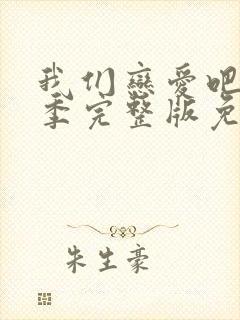 我们恋爱吧
季完整版免
朱生豪